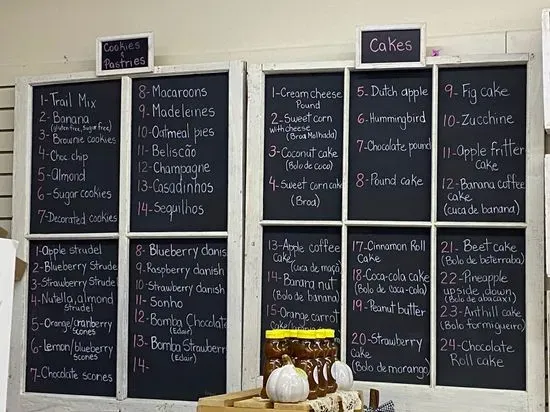 Cookies
&
Pastries
1- Trail Mix
2- Banana
(gluten free, sugar free)
3- Brownie cookies
4- Choc chip
5- Almond
6- Sugar cookies
7- Decorated cookies
8- Macaroons
9- Madeleines
10- Oatmeal pies
11- Beliscão
12- Champagne
13- Casadinhos
14- Sequilhos
1- Apple strudel
2- Blueberry Strude
3- Strawberry Strude
4- Nutella, almond
strudel
5- Orange/cranberry
scones
6- Lemon/blueberry
scones
7- Chocolate scones
8- Blueberry danish
9- Raspberry danish
10- Strawberry danish
11- Sonho
12- Bomba Chocolate
(Edair)
13- Bomba Strawberry
(Edair)
14-
Cakes
1- Cream cheese
Pound
2- Sweet corn
with cheese
(Broa Molhada)
3- Coconut cake
(Bolo de cuco)
4- Sweet corn cake
(Broa)
5- Dutch apple
6- Hummingbird
7- Chocolate pound
8- Pound cake
9- Fig cake
10- Zucchine
11- Apple fritter
cake
12- Banana coffee
cake
(cuca de banana)
13- Apple coffee
cake
(cuca de maçã)
14- Banana nut
(Bolo de banana)
15- Orange carrot
17- Cinnamon Roll
cake
18- Coca-cola cake
(Bolo de coca-cola)
19- Peanut butter
20- Strawberry
cake
(Bolo de morango)
21- Beet cake
(Bolo de beterraba)
22- Pineapple
upside down
(Bolo de abacaxi)
23- Anthill cake
(Bolo formigueiro)
24- Chocolate
Roll cake